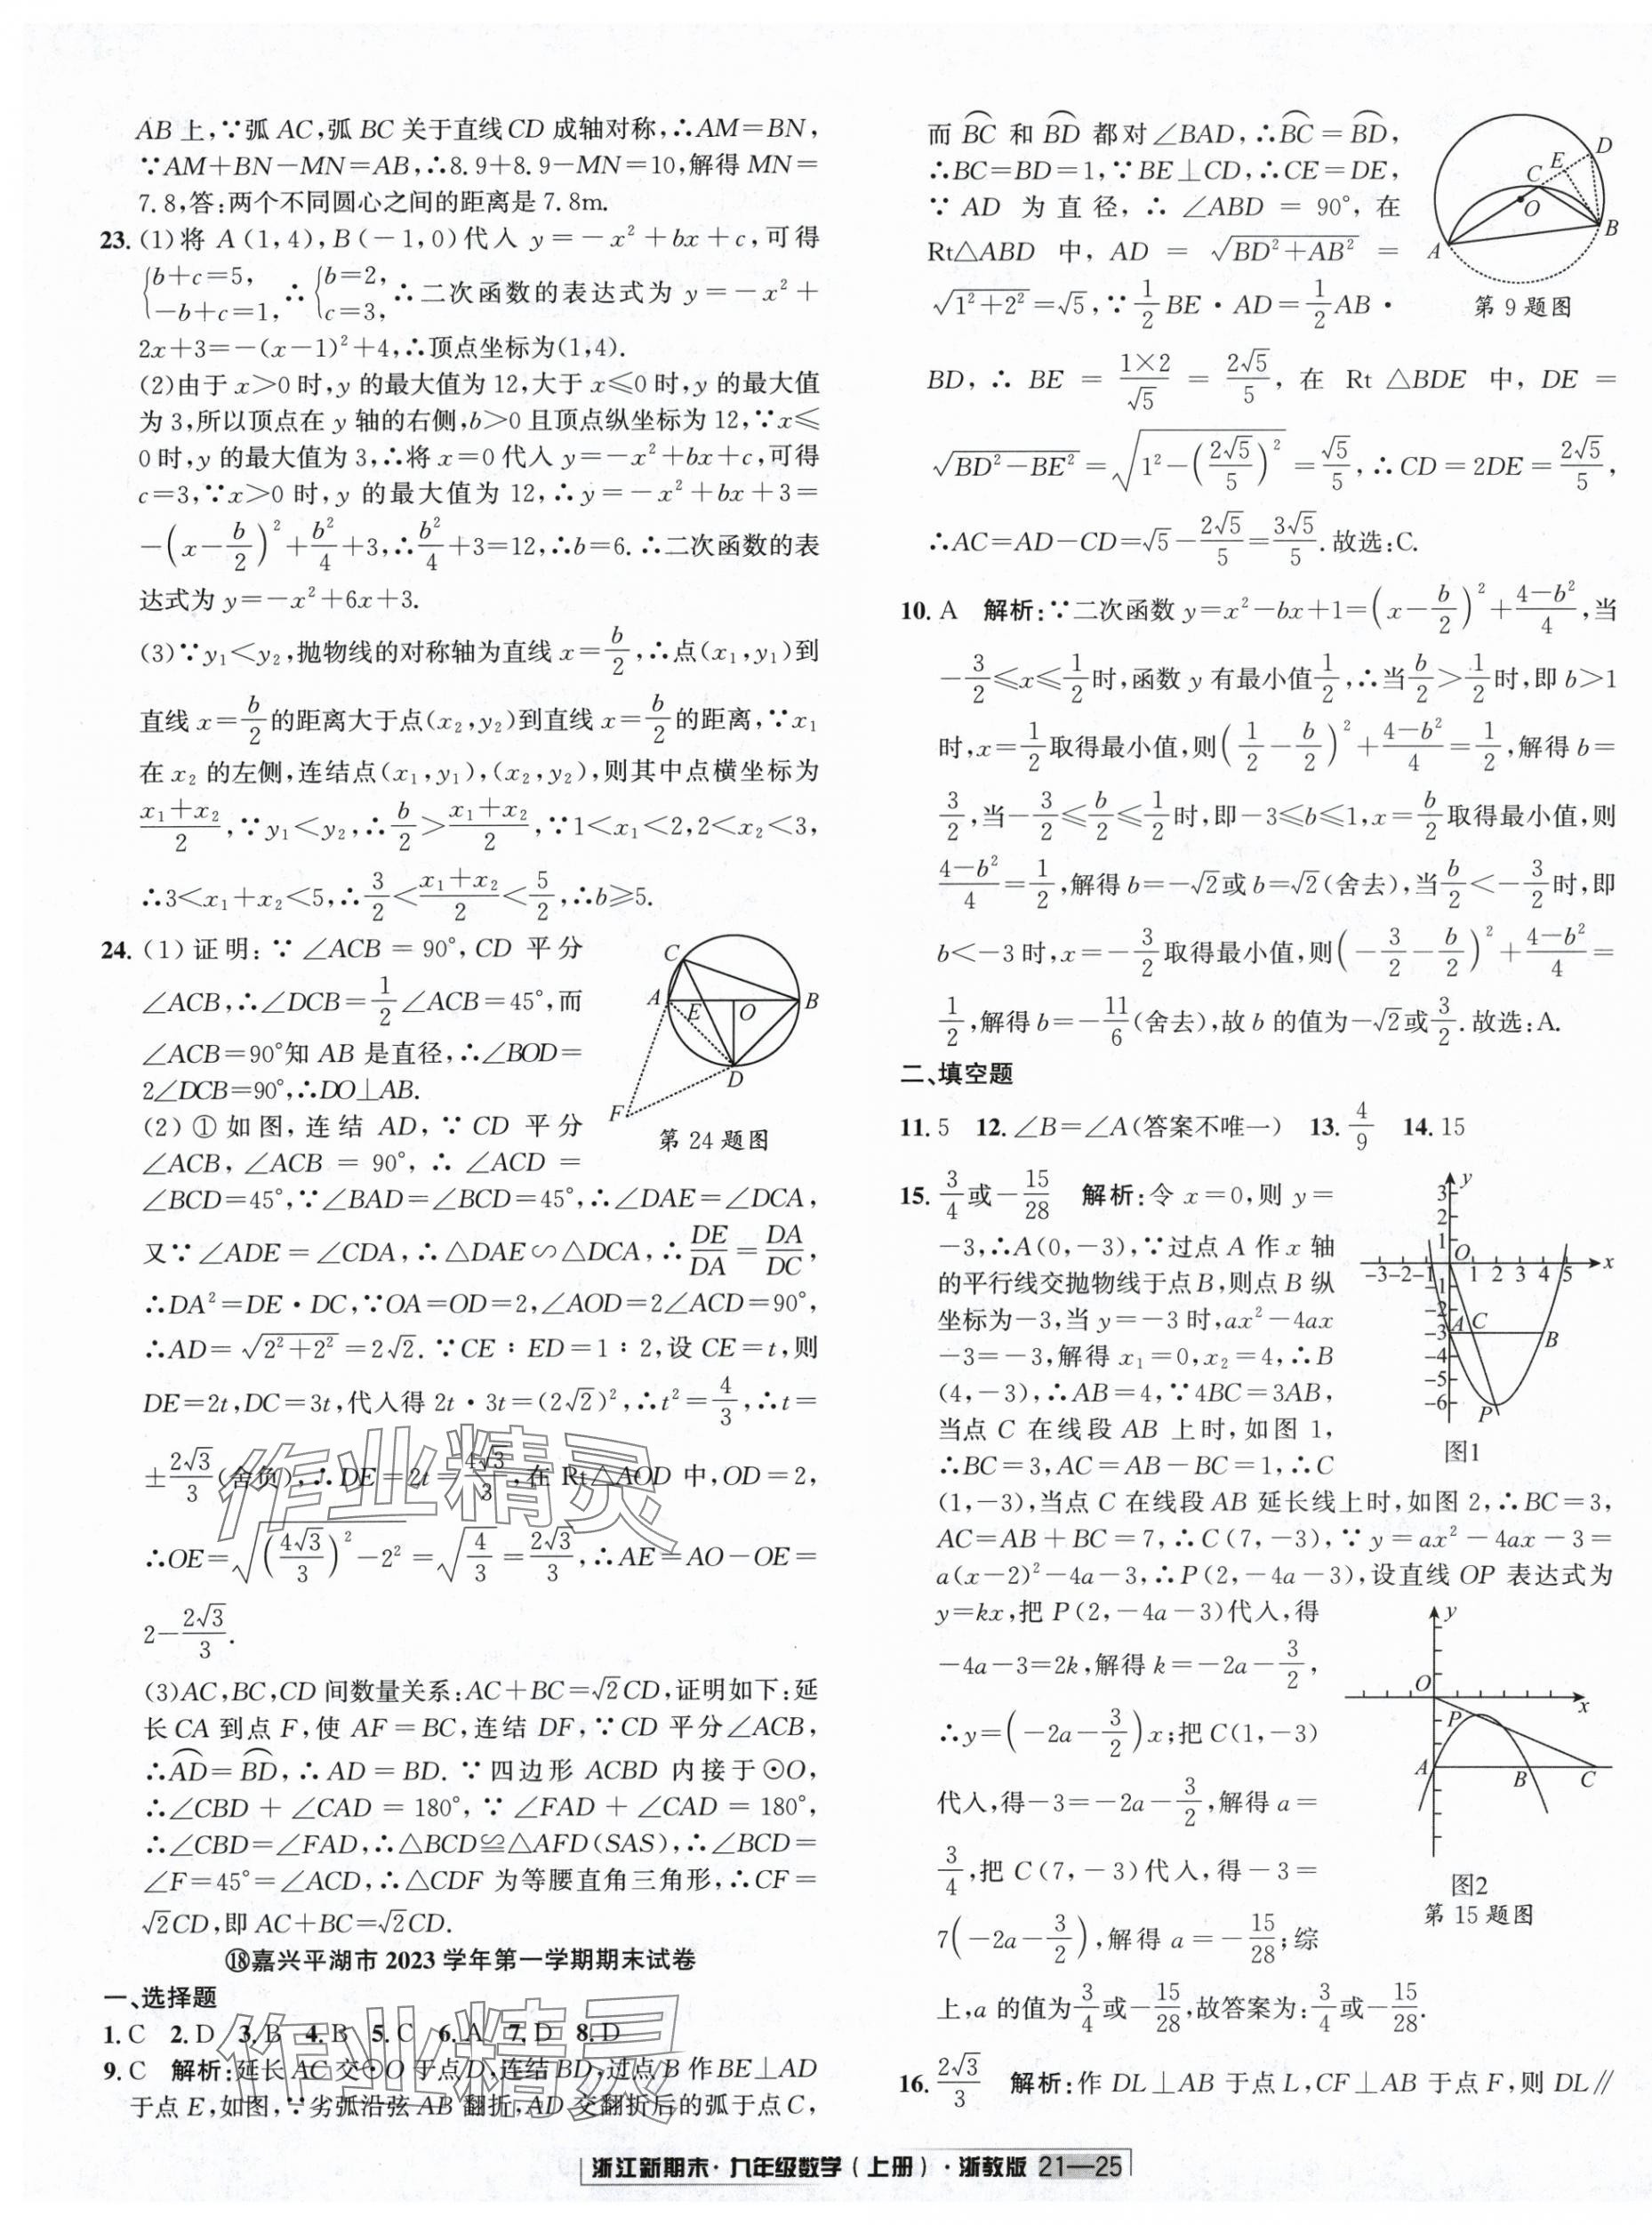 AB上,∵弧AC,弧BC关于直线CD成轴对称,∴AM=BN,
∵AM+BN-MN=AB,∴8.9+8.9-MN=10,解得MN=
7.8,答:两个不同圆心之间的距离是7.8m.
23. (1)将A(1,4),B(-1,0)代入y=-x²+bx+c,可得
{b+c=5, -b+c=1, ∴{b=2, c=3, ∴二次函数的表达式为y=-x²+
2x+3=-(x-1)²+4,∴顶点坐标为(1,4).
(2)由于x>0时,y的最大值为12,大于x≤0时,y的最大值
为3,所以顶点在y轴的右侧,b>0且顶点纵坐标为12,∵x≤
0时,y的最大值为3,∴将x=0代入y=-x²+bx+c,可得
c=3,∵x>0时,y的最大值为12,∴y=-x²+bx+3=
-(x-b/2)²+b²/4+3,∴b²/4+3=12,∴b=6.∴二次函数的表
达式为y=-x²+6x+3.
(3)∵y₁<y₂,抛物线的对称轴为直线x=b/2,∴点(x₁,y₁)到
直线x=b/2的距离大于点(x₂,y₂)到直线x=b/2的距离,∵x₁
在x₂的左侧,连结点(x₁,y₁),(x₂,y₂),则其中点横坐标为
(x₁+x₂)/2,∵y₁<y₂,∴b/2>(x₁+x₂)/2,∵1<x₁<2,2<x₂<3,
∴3<x₁+x₂<5,∴3/2<(x₁+x₂)/2<5/2,∴b≥5.
24. (1)证明:∵∠ACB=90°,CD平分
∠ACB,∴∠DCB=1/2∠ACB=45°,而
∠ACB=90°知AB是直径,∴∠BOD=
2∠DCB=90°,∴DO⊥AB.
(2)①如图,连结AD,∵CD平分
∠ACB,∠ACB=90°,∴∠ACD=
C
A
E
O
B
D
F
第24题图
∠BCD=45°,∵∠BAD=∠BCD=45°,∴∠DAE=∠DCA,
又∵∠ADE=∠CDA,∴△DAE∽△DCA,∴DE/DA=DA/DC,
∴DA²=DE·DC,∵OA=OD=2,∠AOD=2∠ACD=90°,
∴AD=√(2²+2²)=2√2.∵CE∶ED=1∶2,设CE=t,则
DE=2t,DC=3t,代入得2t·3t=(2√2)²,∴t²=4/3,∴t=
±2√3/3(舍负),∴DE=2t=4√3/3,在Rt△AOD中,OD=2,
∴OE=√((4√3/3)²-2²)=√(4/3)=2√3/3,∴AE=AO-OE=
2-2√3/3.
(3)AC,BC,CD间数量关系:AC+BC=√2CD,证明如下:延
长CA到点F,使AF=BC,连结DF,∵CD平分∠ACB,
∴A͡D=B͡D,∴AD=BD.∵四边形ACBD内接于⊙O,
∴∠CBD+∠CAD=180°,∵∠FAD+∠CAD=180°,
∴∠CBD=∠FAD,∴△BCD≌△AFD(SAS),∴∠BCD=
∠F=45°=∠ACD,∴△CDF为等腰直角三角形,∴CF=
√2CD,即AC+BC=√2CD.
⑱嘉兴平湖市2023学年第一学期期末试卷
一、选择题
1. C 2. D 3. B 4. B 5. C 6. A 7. D 8. D
9. C 解析:延长AC交⊙O于点D,连结BD,过点B作BE⊥AD
于点E,如图,∵劣弧沿弦AB翻折,AD交翻折后的弧于点C,
作业精灵
作业精灵
而B͡C和B͡D都对∠BAD,∴B͡C=B͡D,
∴BC=BD=1,∵BE⊥CD,∴CE=DE,
∵AD为直径,∴∠ABD=90°,在
Rt△ABD中,AD=√(BD²+AB²)=
√(1²+2²)=√5,∵1/2BE·AD=1/2AB·
D
E
C
O
A
B
第9题图
BD,∴BE=(1×2)/√5=2√5/5,在Rt△BDE中,DE=
√(BD²-BE²)=√(1²-(2√5/5)²)=√5/5,∴CD=2DE=2√5/5,
∴AC=AD-CD=√5-2√5/5=3√5/5.故选:C.
10. A 解析:∵二次函数y=x²-bx+1=(x-b/2)²+(4-b²)/4,当
-3/2≤x≤1/2时,函数y有最小值1/2,∴当b/2>1/2时,即b>1
时,x=1/2取得最小值,则(1/2-b/2)²+(4-b²)/4=1/2,解得b=
3/2,当-3/2≤b/2≤1/2时,即-3≤b≤1,x=b/2取得最小值,则
(4-b²)/4=1/2,解得b=-√2或b=√2(舍去),当b/2<-3/2时,即
b<-3时,x=-3/2取得最小值,则(-3/2-b/2)²+(4-b²)/4=
1/2,解得b=-11/6(舍去),故b的值为-√2或3/2.故选:A.
二、填空题
11. 5 12. ∠B=∠A(答案不唯一) 13. 4/9 14. 15
15. 3/4或-15/28 解析:令x=0,则y=
-3,∴A(0,-3),∵过点A作x轴
的平行线交抛物线于点B,则点B纵
坐标为-3,当y=-3时,ax²-4ax
-3=-3,解得x₁=0,x₂=4,∴B
(4,-3),∴AB=4,∵4BC=3AB,
当点C在线段AB上时,如图1,
∴BC=3,AC=AB-BC=1,∴C
y
3
2
1
O
-3-2-1 1 2 3 4 5 x
-1
-2
-3
-4
-5
-6
A C
B
P
图1
(1,-3),当点C在线段AB延长线上时,如图2,∴BC=3,
AC=AB+BC=7,∴C(7,-3),∵y=ax²-4ax-3=
a(x-2)²-4a-3,∴P(2,-4a-3),设直线OP表达式为
y=kx,把P(2,-4a-3)代入,得
-4a-3=2k,解得k=-2a-3/2,
∴y=(-2a-3/2)x;把C(1,-3)
代入,得-3=-2a-3/2,解得a=
3/4,把C(7,-3)代入,得-3=
7(-2a-3/2),解得a=-15/28;综
y
O
x
P
A
B
C
图2
第15题图
上,a的值为3/4或-15/28,故答案为:3/4或-15/28.
16. 2√3/3 解析:作DL⊥AB于点L,CF⊥AB于点F,则DL∥
浙江新期末·九年级数学(上册)·浙教版 21—25